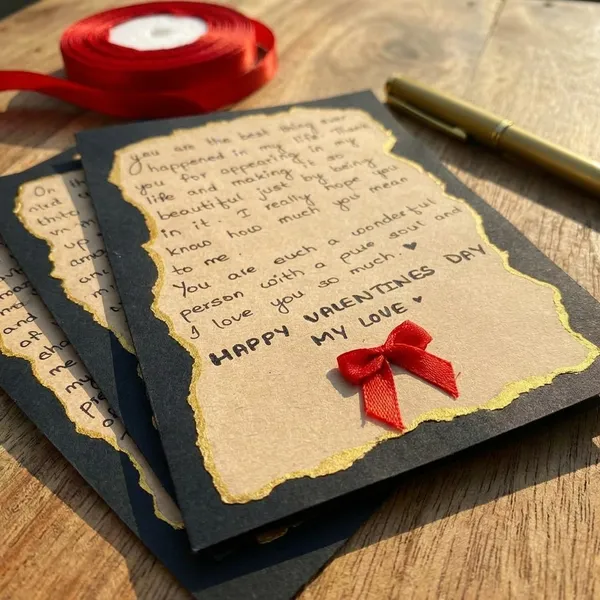 you are the best thing ever
happened in my life. Thank
you for appearing in my
life and making it so
beautiful just by being
in it. I really hope you
know how much you mean
to me.
You are such a wonderful
person with a pure soul and
I love you so much. ♥
HAPPY VALENTINES DAY
MY LOVE ♥
On th
and
up
and
of
me
my